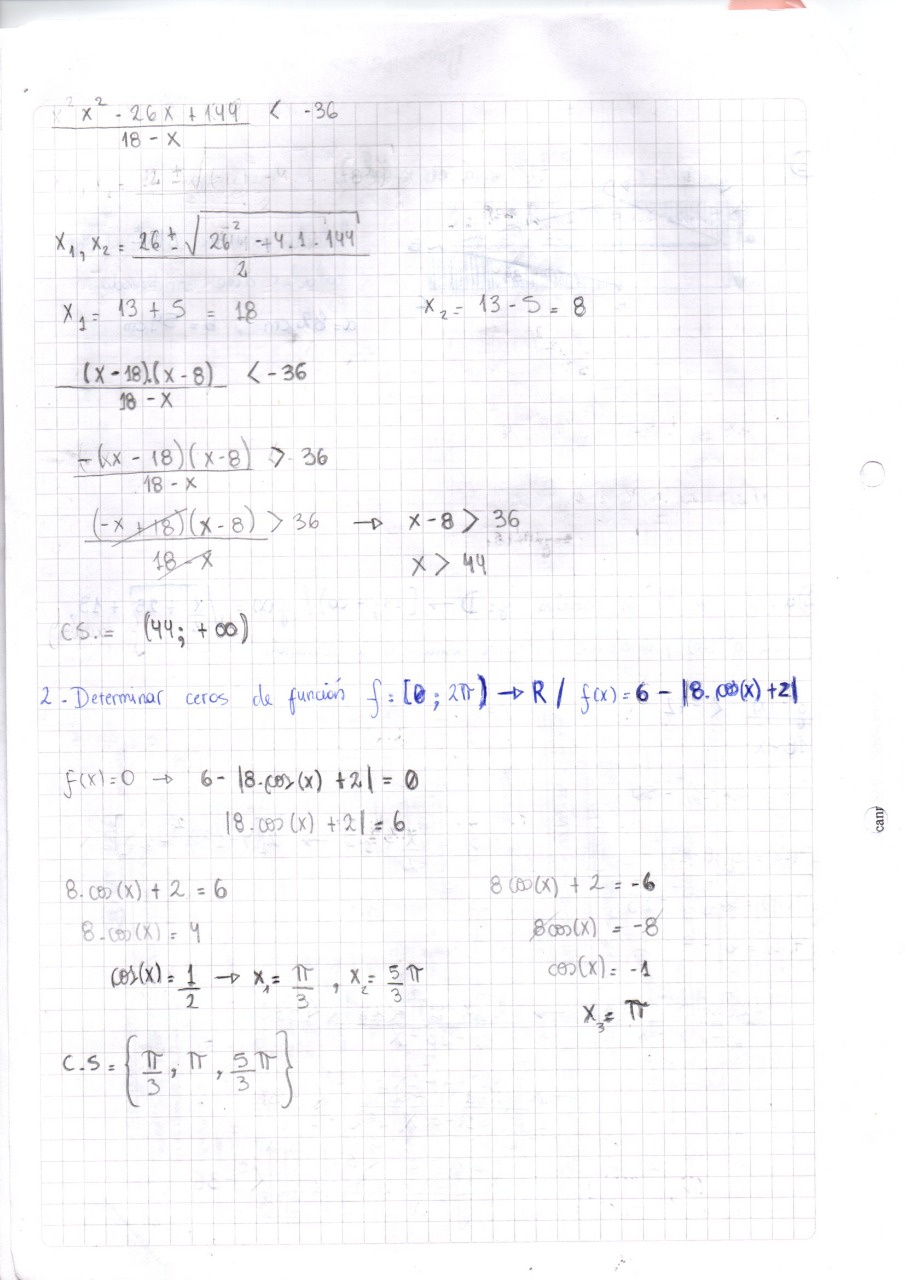 x² - 26x + 144 / 18 - x < -36
x₁, x₂ = 26 ± √(26² - 4.1.144) / 2
x₁ = 13 + 5 = 18    x₂ = 13 - 5 = 8
(x - 18).(x - 8) / 18 - x < -36
-(x - 18)(x - 8) / 18 - x > 36
(-x + 18)(x - 8) / 18 - x > 36 → x - 8 > 36
x > 44
CS. = (44; +∞)
2 - Determinar ceros de función f: [0; 2π) → R / f(x) = 6 - |8.cos(x) + 2|
f(x) = 0 → 6 - |8.cos(x) + 2| = 0
|8.cos(x) + 2| = 6
8.cos(x) + 2 = 6    8 cos(x) + 2 = -6
8.cos(x) = 4    8cos(x) = -8
cos(x) = 1/2 → x₁ = π/3, x₂ = 5/3 π    cos(x) = -1
x₃ = π
C.S = {π/3, π, 5/3 π}